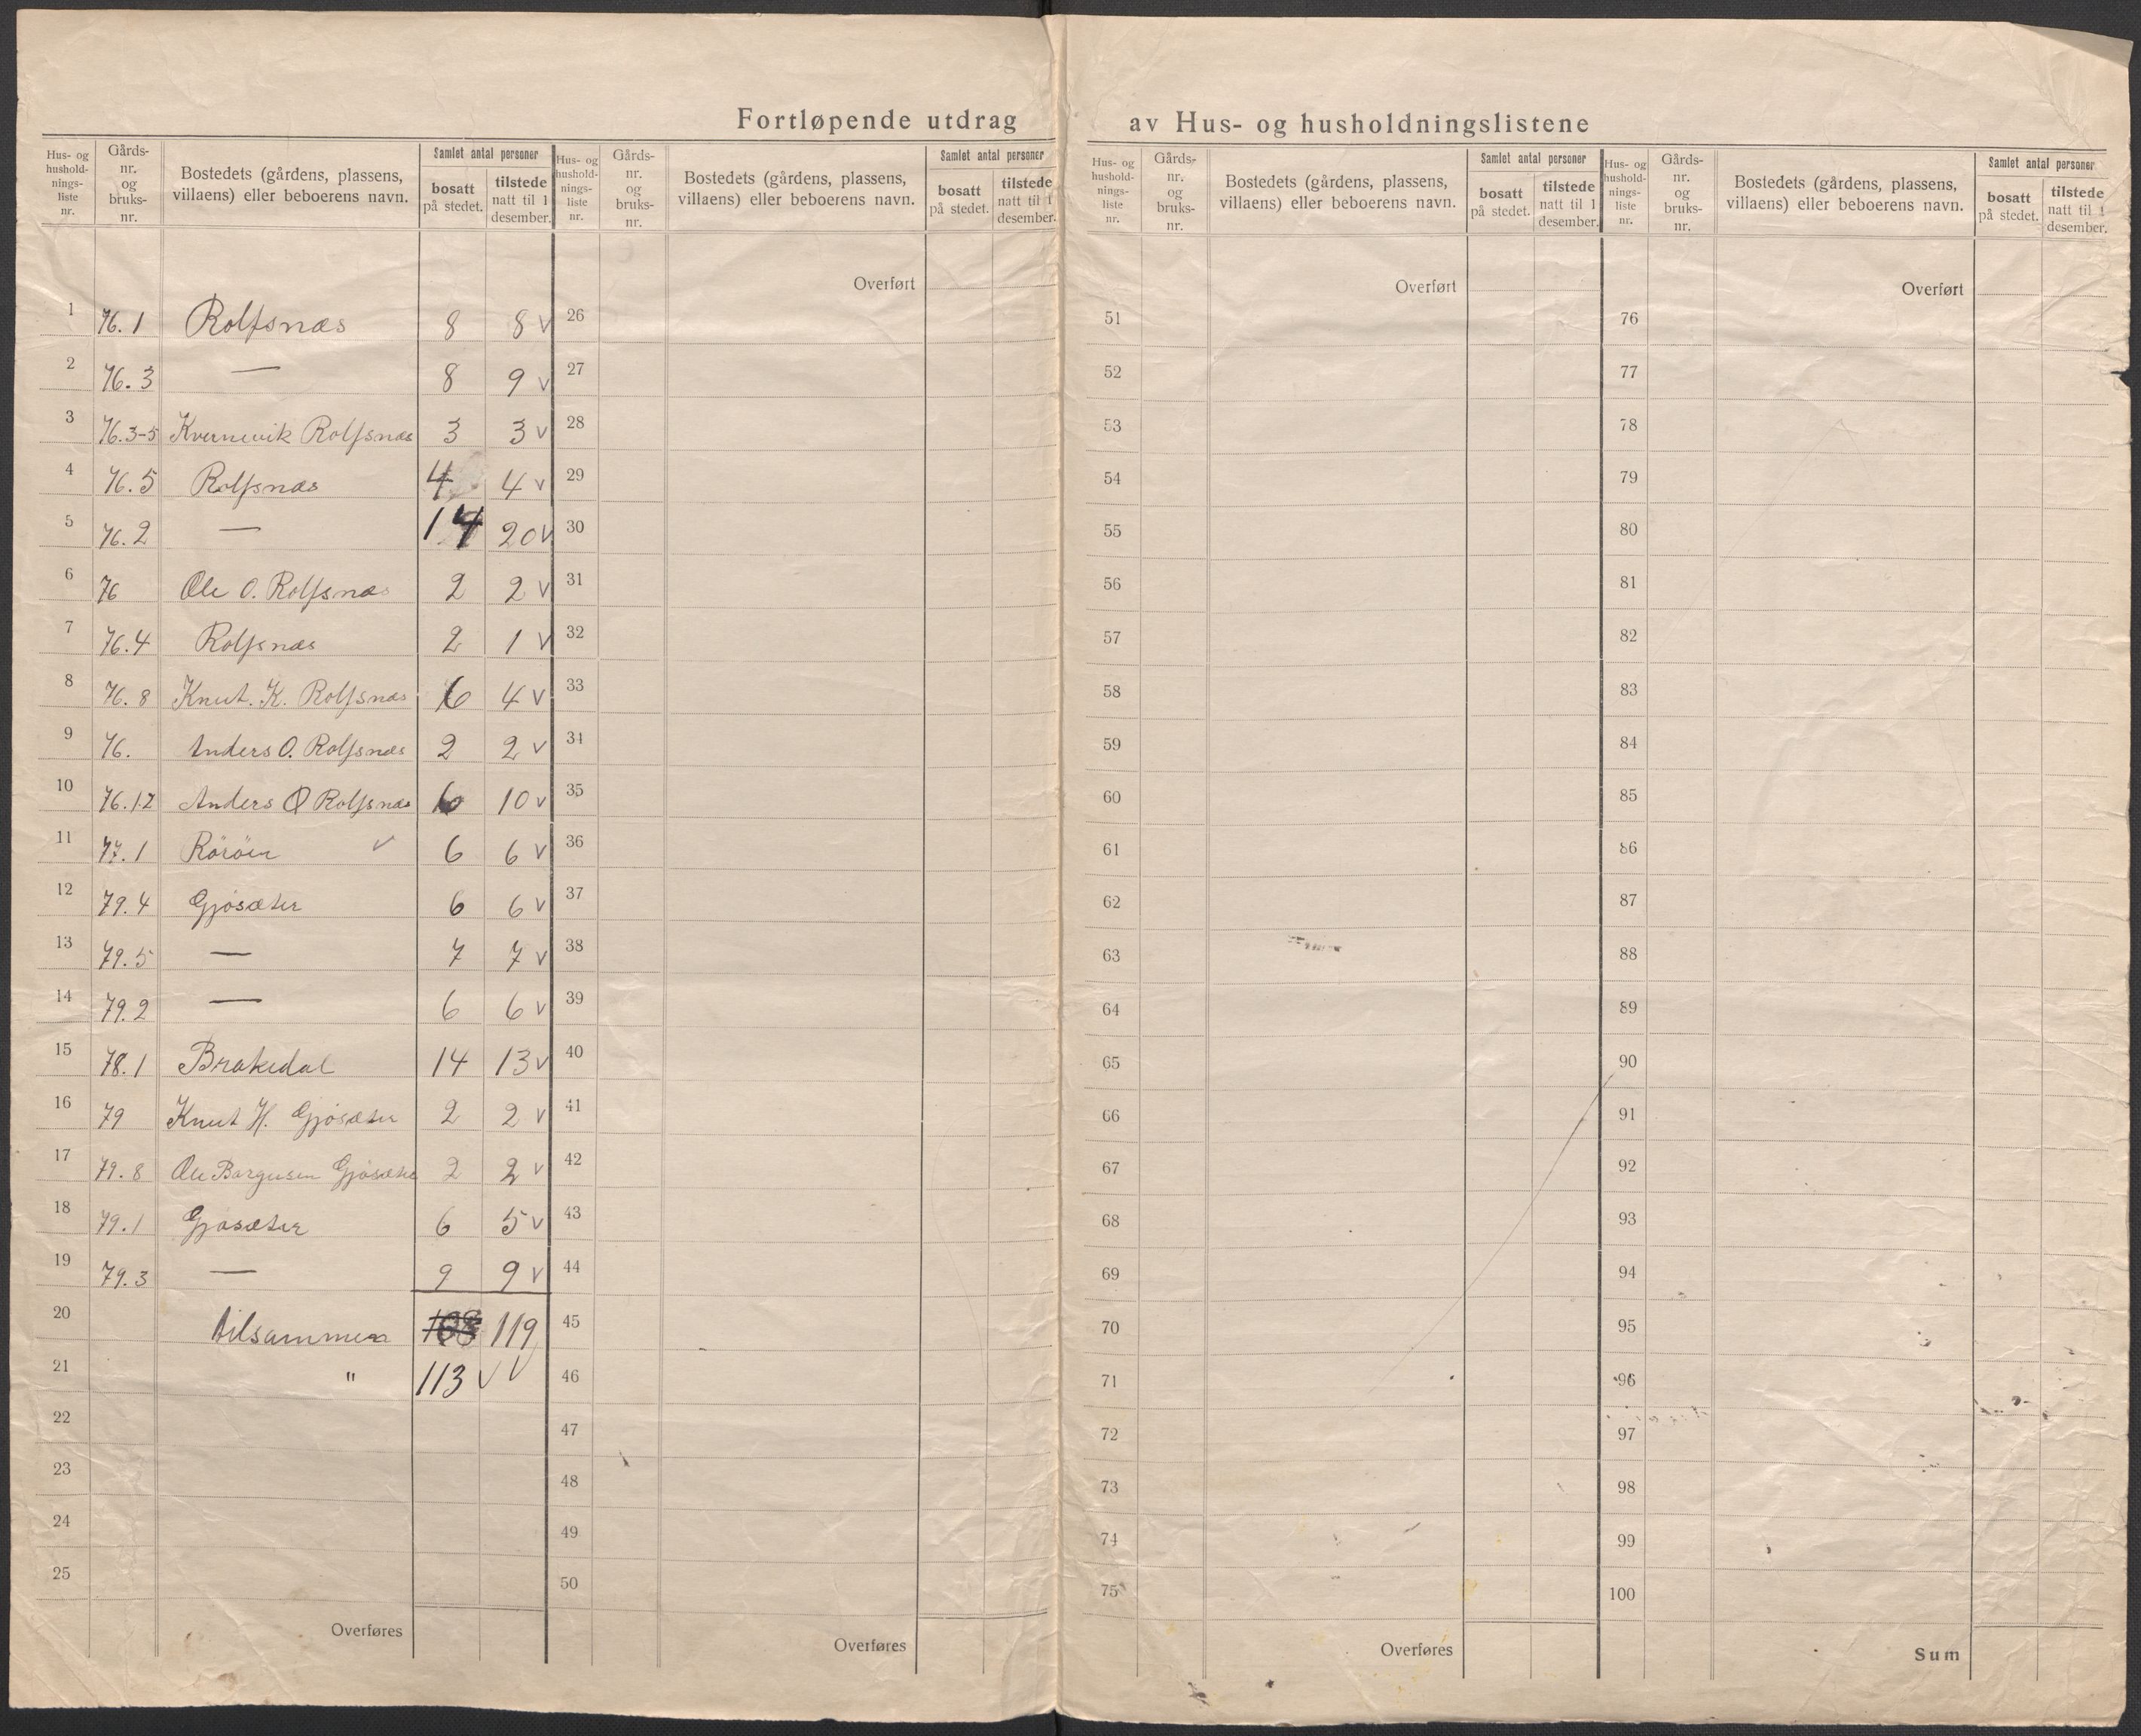 Fortløpende utdrag av Hus- og husholdningslistene
Hus- og husholdningsliste nr. | Gårdsnr. og bruksnr. | Bostedets (gårdens, plassens, villaens) eller beboerens navn. | Samlet antal personer bosatt på stedet. | tilstede natt til 1 desember.
Hus- og husholdningsliste nr. | Gårdsnr. og bruksnr. | Bostedets (gårdens, plassens, villaens) eller beboerens navn. | Samlet antal personer bosatt på stedet. | tilstede natt til 1 desember.
Hus- og husholdningsliste nr. | Gårdsnr. og bruksnr. | Bostedets (gårdens, plassens, villaens) eller beboerens navn. | Samlet antal personer bosatt på stedet. | tilstede natt til 1 desember.
Hus- og husholdningsliste nr. | Gårdsnr. og bruksnr. | Bostedets (gårdens, plassens, villaens) eller beboerens navn. | Samlet antal personer bosatt på stedet. | tilstede natt til 1 desember.
Overført Overført Overført
1 76.1 Rolfsnæs 8 8 v 26 51 76
2 76.3 — 8 9 v 27 52 77
3 76.3-5 Kvernevik Rolfsnæs 3 3 v 28 53 78
4 76.5 Rolfsnæs 4 4 v 29 54 79
5 76.2 — 14 20 v 30 55 80
6 76 Ole O. Rolfsnæs 2 2 v 31 56 81
7 76.4 Rolfsnæs 2 1 v 32 57 82
8 76.8 Knut. K. Rolfsnæs 6 4 v 33 58 83
9 76. Anders O. Rolfsnæs 2 2 v 34 59 84
10 76.12 Anders O Rolfsnæs 6 10 v 35 60 85
11 77.1 Röröen v 6 6 v 36 61 86
12 79.4 Gjøsæter 6 6 v 37 62 87
13 79.5 — 7 7 v 38 63 88
14 79.2 — 6 6 v 39 64 89
15 78.1 Brakedal 14 13 v 40 65 90
16 79 Knut H. Gjøsæter 2 2 v 41 66 91
17 79.8 Ole Gjøsæter 2 2 v 42 67 92
18 79.1 Gjøsæter 6 5 v 43 68 93
19 79.3 — 9 9 v 44 69 94
20 tilsammen 119 45 70 95
21 " 113 v v 46 71 96
22 47 72 97
23 48 73 98
24 49 74 99
25 50 75 100
Overføres Overføres Overføres Sum